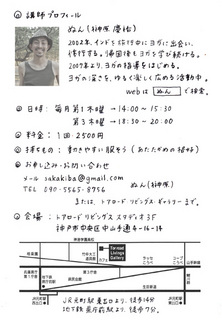 ◎ 講師プロフィール
ぬん(神原 慶祐)
2002年、インドを旅行中にヨガに出会い、
修行する。帰国後もヨガを学び続ける。
2007年より、ヨガの指導をはじめる。
ヨガの深さを、ゆるく楽しく広める活動中。
webは ぬん で検索。
◎ 日時: 毎月第1木曜 → 14:00 〜 15:30
第3木曜 → 18:30 〜 20:00
◎ 料金: 1回 2500円
◎ 持ちもの: 動きやすい服そう(あたたかめの格好)
◎ お申し込み・お問い合わせ
メール sakakiba@gmail.com
TEL 090-5565-8956
ぬん(神原)
または、トアロード リビングス ギャラリーまで。
◎ 会場: トアロード リビングス スタヂオ 3F
神戸市中央区中山手通4-16-14
Tor road
Livings
Gallery
JR元町駅東口より、徒歩14分
地下鉄県庁前駅より、徒歩7分。